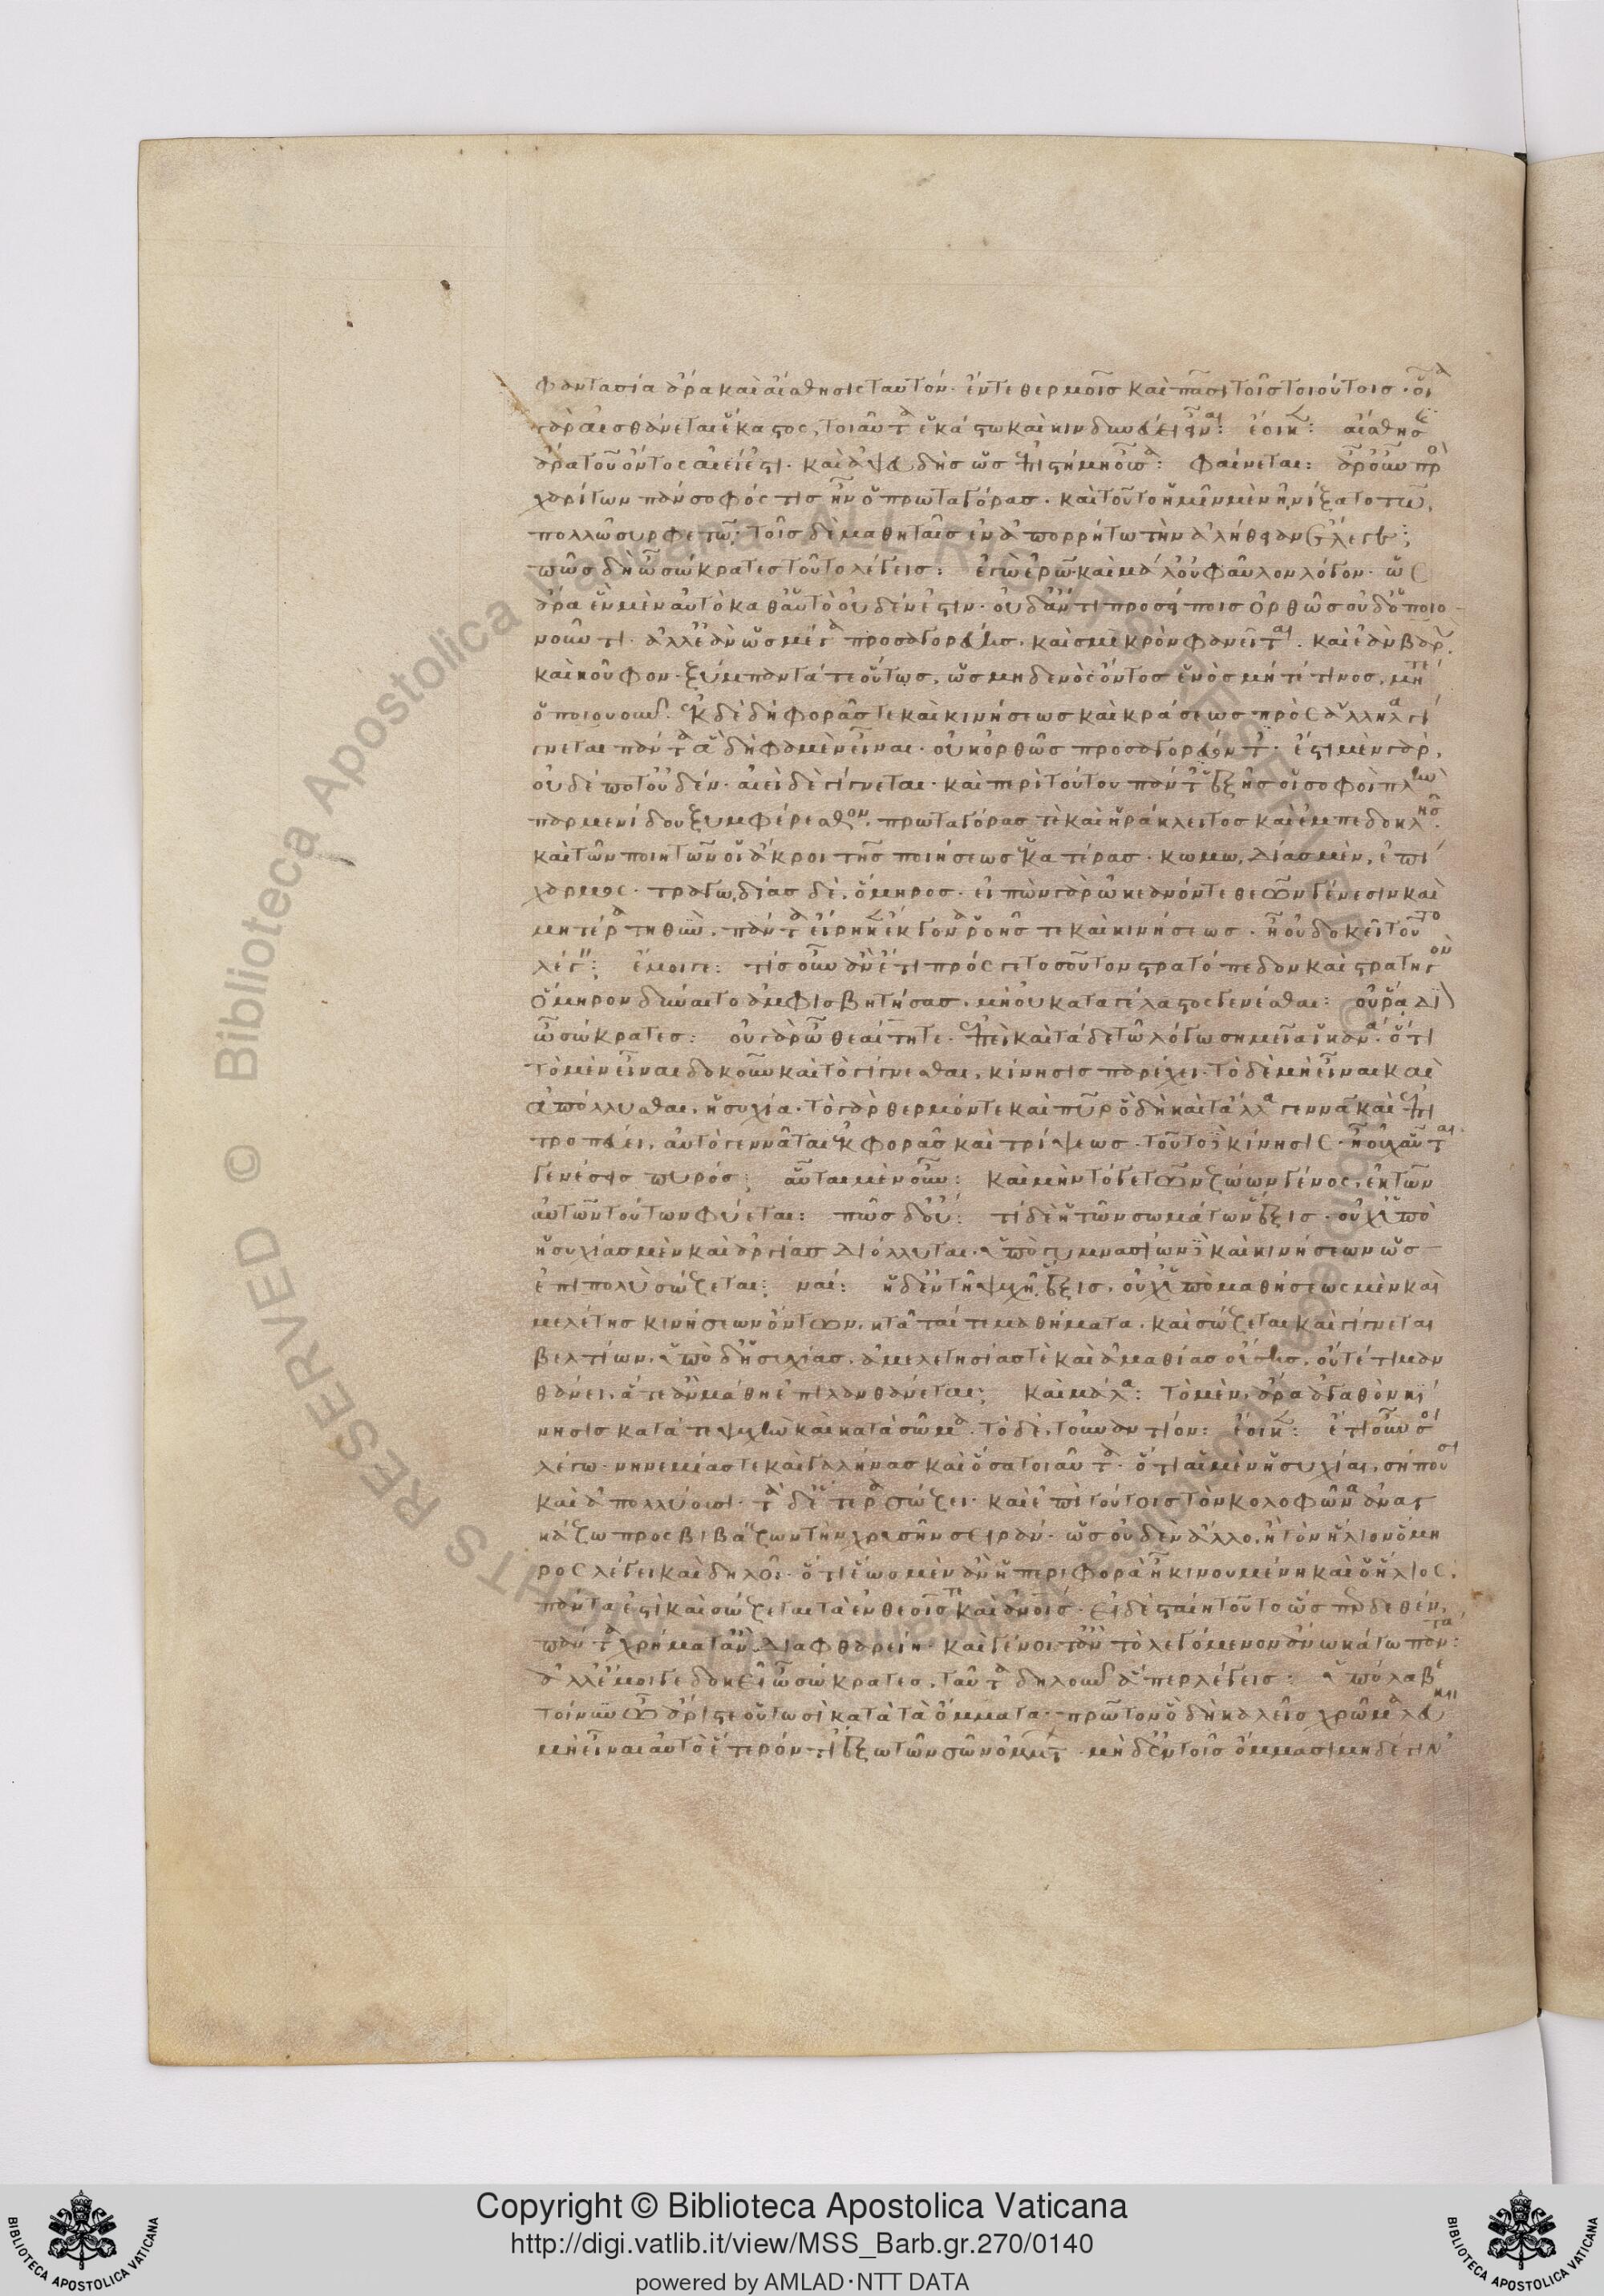 φαντασία ἄρα καὶ αἴσθησις ταυτόν. ἔν τε θερμοῖς καὶ πᾶσι τοῖς τοιούτοις. οἷα
γὰρ αἰσθάνεται ἕκαστος, τοιαῦτα ἑκάστω καὶ κινδυνεύει εἶναι: ἔοικεν: αἴσθησις
ἄρα τοῦ ὄντος ἀεί ἐστι. καὶ ἀψευδὴς ὡς ἐπιστήμη οὖσα: φαίνεται: ἆρ οὖν πρὸς
χαρίτων πάνσοφός τις ἦν ὁ πρωταγόρας. καὶ τοῦτο ἡμῖν μὲν ἠνίξατο τῶ
πολλῶ συρφετῶ. τοῖς δὲ μαθηταῖς ἐν ἀπορρήτω τὴν ἀλήθειαν ἔλεγεν;
πῶς δὴ ὦ σώκρατες τοῦτο λέγεις: ἐγὼ ἐρῶ. καὶ μάλ οὐ φαῦλον λόγον. ὡς
ἄρα ἓν μὲν αὐτὸ καθ αὑτὸ οὐδέν ἐστιν. οὐδ ἄν τι προσείποις ὀρθῶς οὐδ ὁποιο
νοῦν τι. ἀλλ ἐὰν ὡς μέγα προσαγορεύης, καὶ σμικρὸν φανεῖται. καὶ ἐὰν βαρύ.
καὶ κοῦφον. ξύμπαντά τε οὕτως, ὡς μηδενὸς ὄντος ἑνὸς μήτέ τινος, μήτε
ὁποιουοῦν. ἐκ δὲ δὴ φορᾶς τε καὶ κινήσεως καὶ κράσεως πρὸς ἄλληλα γί
γνεται πάντα ἃ δή φαμεν εἶναι. οὐκ ὀρθῶς προσαγορεύοντες. ἔστι μὲν γὰρ,
οὐδέποτ οὐδέν. ἀεὶ δὲ γίγνεται. καὶ περὶ τούτου πάντες ἑξῆς οἱ σοφοὶ πλὴν
παρμενίδου ξυμφέρεσθον. πρωταγόρας τὲ καὶ ἡράκλειτος καὶ ἐμπεδοκλῆς.
καὶ τῶν ποιητῶν οἱ ἄκροι τῆς ποιήσεως ἑκατέρας. κωμωδίας μὲν, ἐπί
χαρμος. τραγωδίας δὲ, ὅμηρος. εἰπὼν γὰρ ὠκεανόν τε θεῶν γένεσιν καὶ
μητέρα τηθὺν. πάντα εἴρηκεν ἔκγονα ῥοῆς τε καὶ κινήσεως. ἢ οὐ δοκεῖ τοῦτο
λέγειν; ἔμοιγε: τίς οὖν ἂν ἔτι πρός γε τοσοῦτον στρατόπεδον καὶ στρατηγὸν
ὅμηρον δύναιτο ἀμφισβητήσας, μὴ οὐ καταγέλαστος γενέσθαι: οὐ ῥάδιον
ὦ σώκρατες: οὐ γὰρ ὦ θεαίτητε. ἐπεὶ καὶ τάδε τῶ λόγω σημεῖα ἱκανά. ὅτι
τὸ μὲν εἶναι δοκοῦν καὶ τὸ γίγνεσθαι, κίνησις παρέχει. τὸ δὲ μὴ εἶναι καὶ
ἀπόλλυσθαι, ἡσυχία. τὸ γὰρ θερμόν τε καὶ πῦρ ὃ δὴ καὶ τἄλλα γεννᾶ καὶ ἐπι
τροπεύει, αὐτὸ γεννᾶται ἐκ φορᾶς καὶ τρίψεως. τοῦτο δὲ κίνησις. ἢ οὐχ αὗται
γενέσεις πυρός; αὗται μὲν οὖν: καὶ μὴν τό γε τῶν ζώων γένος, ἐκ τῶν
αὐτῶν τούτων φύεται: πῶς δ οὔ: τί δὲ ἡ τῶν σωμάτων ἕξις. οὐχ ὑπὸ
ἡσυχίας μὲν καὶ ἀργίας διόλλυται. ὑπὸ γυμνασίων δὲ καὶ κινήσεων ὡς
ἐπιπολὺ σώζεται; ναί: ἡ δ ἐν τῆ ψυχῆ ἕξις, οὐχ ὑπὸ μαθήσεως μὲν καὶ
μελέτης κινήσεων ὄντων, κτᾶταί τε μαθήματα. καὶ σώζεται καὶ γίγνεται
βελτίων, ὑπὸ δ ἡσυχίας, ἀμελετησίας τὲ καὶ ἀμαθίας οὔσης, οὔτέ τι μαν
θάνει, ἅ τε ἂν μάθη ἐπιλανθάνεται; καὶ μάλα: τὸ μὲν, ἄρα ἀγαθὸν κί
νησις κατά τε ψυχὴν καὶ κατὰ σῶμα. τὸ δὲ, τοὐναντίον: ἔοικεν: ἔτι οὖν σοι
λέγω. νηνεμίας τε καὶ γαλήνας καὶ ὅσα τοιαῦτα. ὅτι αἱ μὲν ἡσυχίαι, σήπουσι
καὶ ἀπολλύουσι. τὰ δ ἕτερα σώζει. καὶ ἐπὶ τούτοις τὸν κολοφῶνα ἀναγ
κάζω προσβιβάζων τὴν χρυσῆν σειράν. ὡς οὐδὲν ἄλλο, ἢ τὸν ἥλιον ὅμη
ρος λέγει καὶ δηλοῖ. ὅτι ἕως μὲν ἂν ἡ περιφορὰ ἦ κινουμένη καὶ ὁ ἥλιος,
πάντα ἐστὶ καὶ σώζεται τὰ ἐν θεοῖς τε καὶ ἀνοις. εἰ δὲ σταίη τοῦτο ὥσπερ δεθέν,
πάντα χρήματ ἂν διαφθαρείη. καὶ γένοιτ ἂν τὸ λεγόμενον ἄνω κάτω πάντα:
ἀλλ ἔμοιγε δοκεῖ ὦ σώκρατες, ταῦτα δηλοῦν ἅπερ λέγεις: ὑπόλαβε
τοίνυν ὦ ἄριστε οὑτωσὶ κατὰ τὰ ὄμματα. πρῶτον ὃ δὴ καλεῖς χρῶμα λευκὸν
μὴ εἶναι αὐτὸ ἕτερόν τι ἔξω τῶν σῶν ὀμμάτων. μὴ δ ἐν τοῖς ὄμμασι μηδέ τιν
Copyright © Biblioteca Apostolica Vaticana
http://digi.vatlib.it/view/MSS_Barb.gr.270/0140
powered by AMLAD·NTT DATA